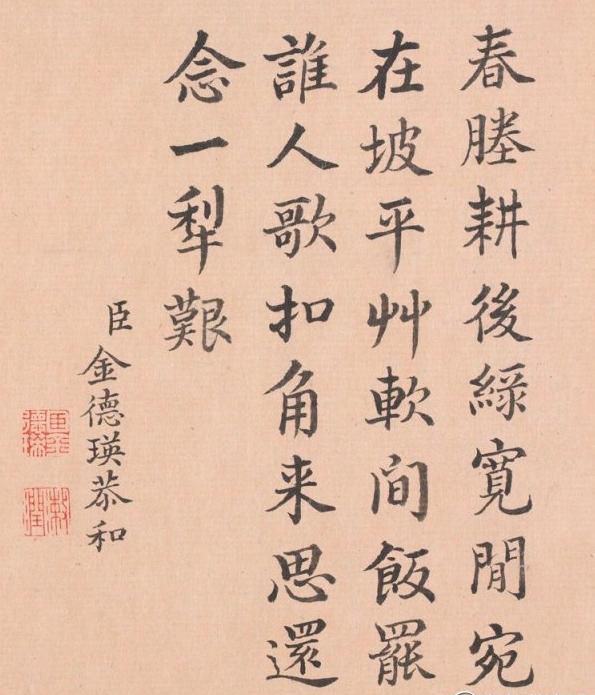 春塍耕後綠寬閒宛
在坡平艸軟間飯罷
誰人歌扣角来思還
念一犁艱
臣金德瑛恭和
臣金德瑛